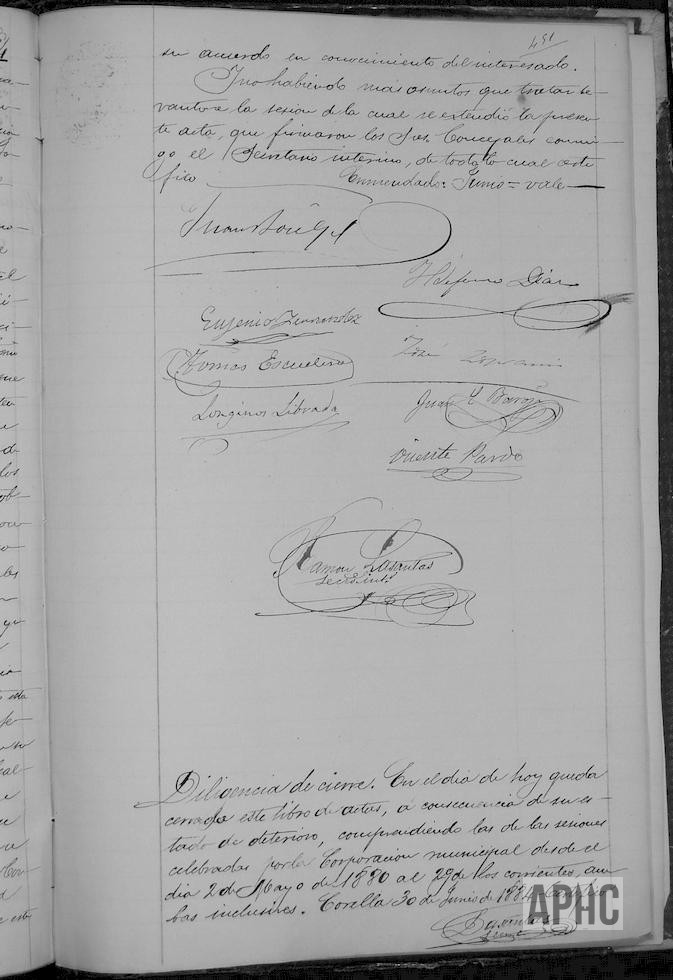 491
su acuerdo en conocimiento del interesado.
Y no habiendo mas asuntos que tratar se le-
vantó la sesion de la cual se estendió la presen-
te acta, que firmaron los Sres. Concejales conmi-
go el Secretario interino, de todo lo cual certi-
fico
Enmendado: Junio = vale
Ildefonso Diaz
Eugenio Fernandez
José
Tomas Escudero
Juan Y. Barón
Longinos Librada
Vicente Pardo
Ramon Lasantas
Secro. int.
Diligencia de cierre. En el dia de hoy queda
cerrado este libro de actas, á consecuencia de su es-
tado de deterioro, comprendiendo las de las sesiones
celebradas por la Corporacion municipal desde el
dia 2 de Mayo de 1880 al 29 de los corrientes, am-
bas inclusives. Corella 30 de Junio de 1884
APHC